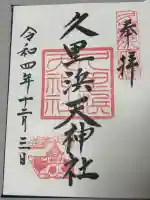 奉拝
久里浜天神社
令和四年十二月三日